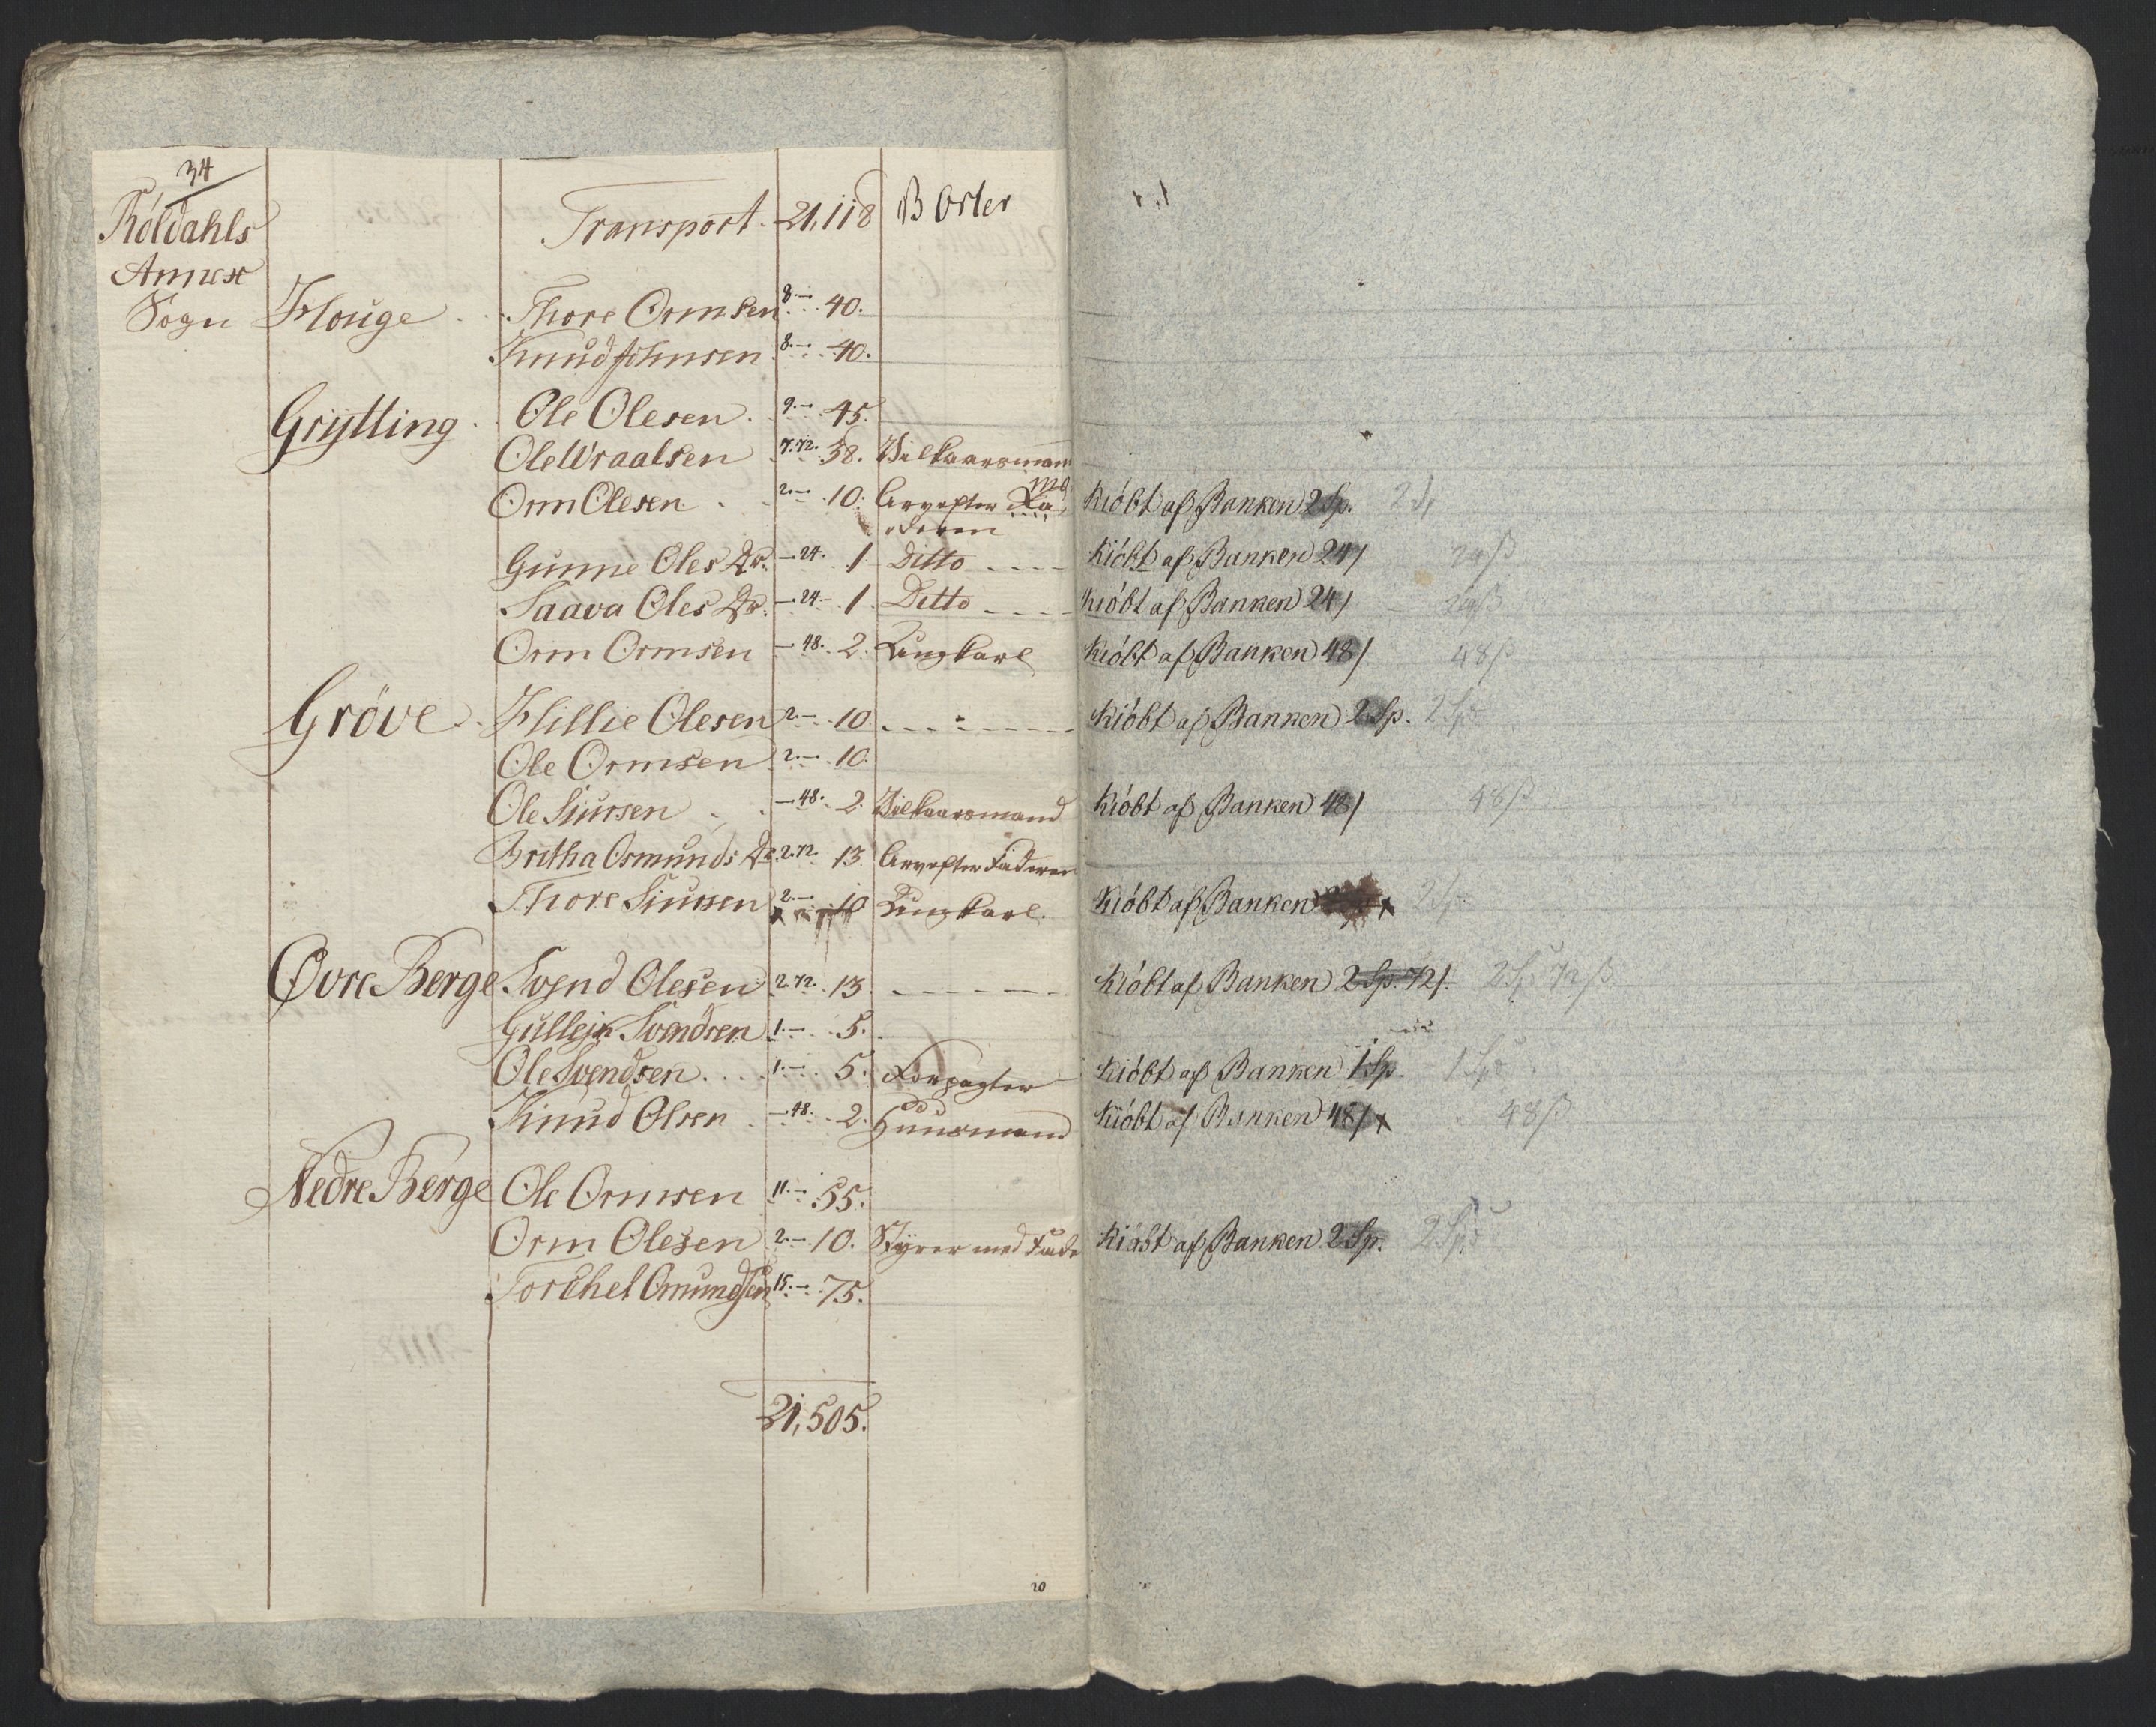 34
Röldahls Transport. 21,118 B Orter
Annex
Sogn Houge Thore Ormsen 8.— 40.
Knud Johnsen 8.— 40.
Grytting Ole Olesen 9.— 45.
Ole Wraalsen 7.72. 38. Vilkaarsmand
Orm Olesen 2.— 10. Arv efter Fa Kióbt af Banken 2 Sp. 2 Sp
deren
Gunne Oles Dr. —24. 1 Ditto Kióbt af Banken 24/ 24 ß
Saava Oles Dr. —24— 1. Ditto Kióbt af Banken 24/ 24 ß
Orm Ormsen —48. 2. Ungkarl Kióbt af Banken 48/ 48 ß
Gröve Hillie Olesen 2.— 10. Kióbt af Banken 2 Sp. 2 Spd
Ole Ormsen 2.— 10.
Ole Siursen —48. 2. Vilkaarsmand Kióbt af Banken 48/ 48 ß
Britha Osmunds Dr. 2.72. 13. Arv efter Faderen
Thore Siursen 2.— 10 Ungkarl. Kióbt af Banken 2 Sp
Øvre Berge Svend Olesen 2.72. 13. Kióbt af Banken 2 Sp. 72/. 2 Sp 72 ß
Gullejk Svendsen 1.— 5.
Ole Svendsen 1.— 5. Forpagter Kióbt af Banken 1 Sp. 1 Spd
Knud Olsen —48. 2. Huusmand Kióbt af Banken 48/ 48 ß
Nedre Berge Ole Ormsen 11.— 55.
Orm Olesen 2.— 10. Styrer med Fade Kióbt af Banken 2 Sp. 2 Spd
Torchel Omundsen 15.— 75.
21,505.
20